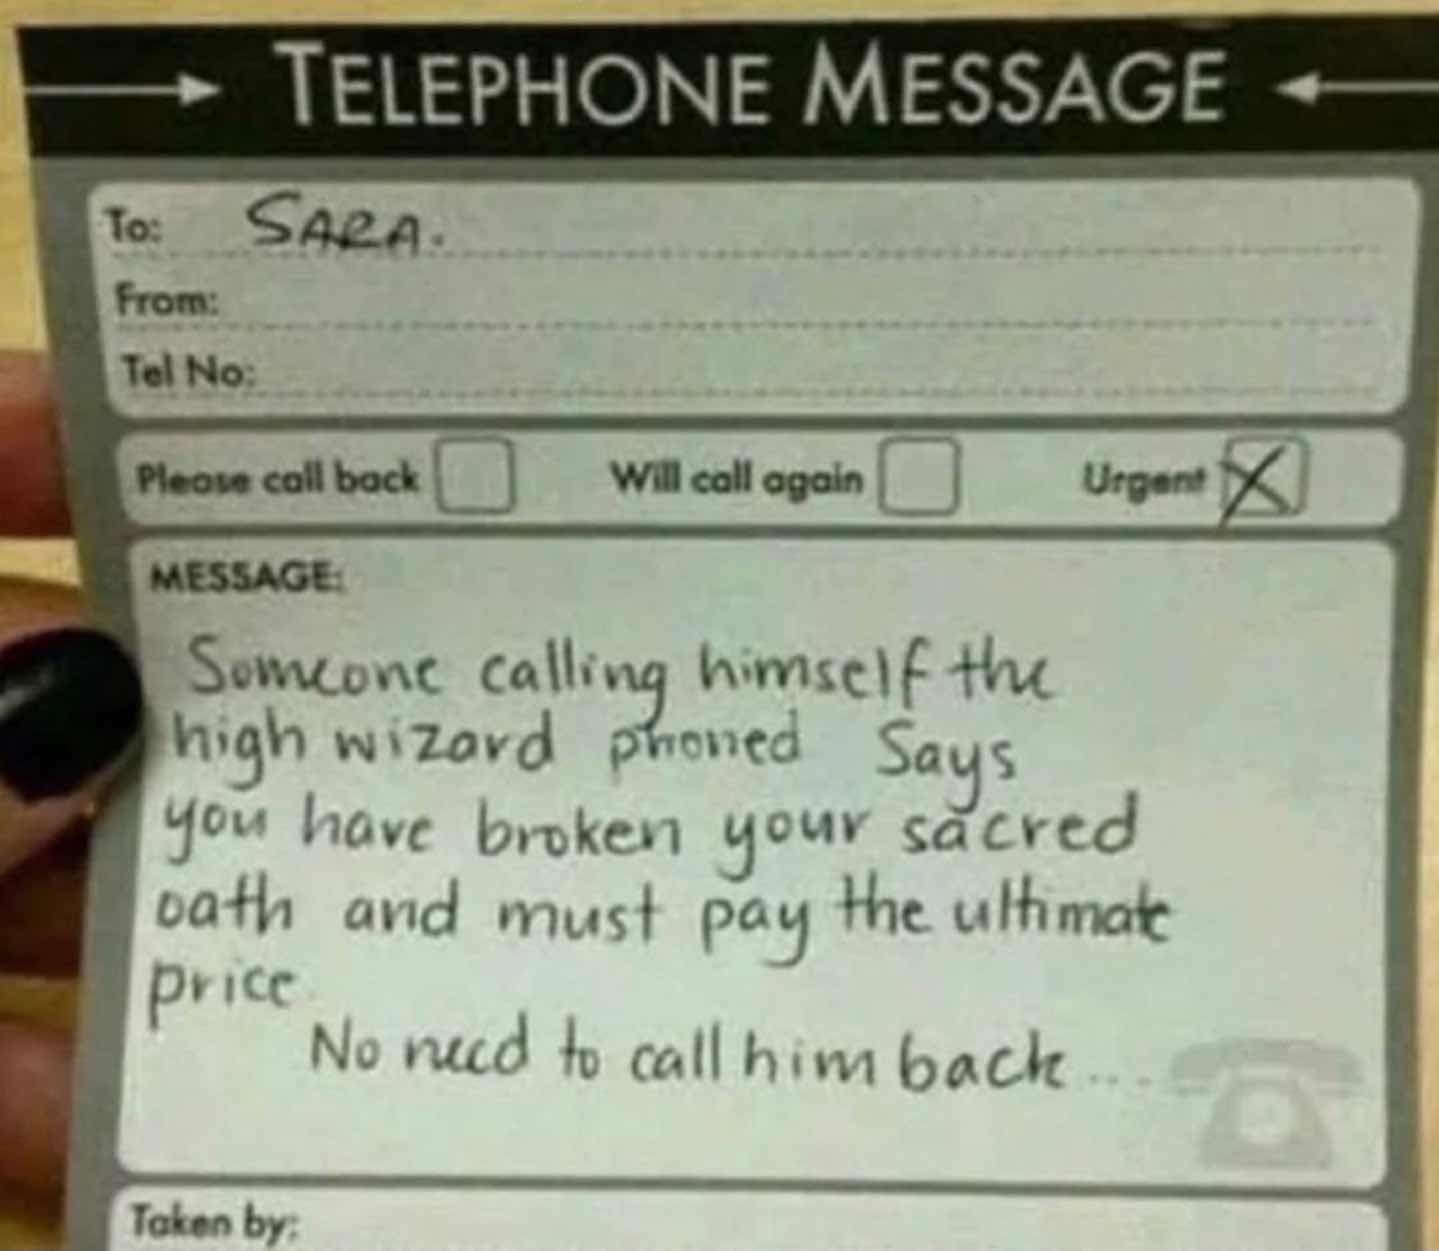 TELEPHONE MESSAGE
To: SARA.
From:
Tel No:
Please call back Will call again Urgent X
MESSAGE:
Someone calling himself the
high wizard phoned Says
you have broken your sacred
oath and must pay the ultimate
price
No need to call him back ...
Taken by: